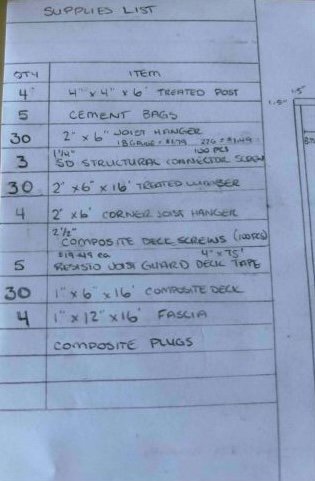 SUPPLIES LIST
QTY ITEM
4 4" x 4" x 6' TREATED POST
5 CEMENT BAGS
30 2" x 6" JOIST HANGER
18 GAUGE = $1.79 22G = $1.49
1 1/4" 100 PCS
3 SD STRUCTURAL CONNECTOR SCREW
30 2" x 6" x 16' TREATED LUMBER
4 2" x 6" CORNER JOIST HANGER
2 1/2"
COMPOSITE DECK SCREWS (100PCS)
$19.49 ea 4" x 75'
5 JOIST GUARD DECK TAPE
30 1" x 6" x 16' COMPOSITE DECK
4 1" x 12" x 16' FASCIA
COMPOSITE PLUGS
1.5"
1.5"